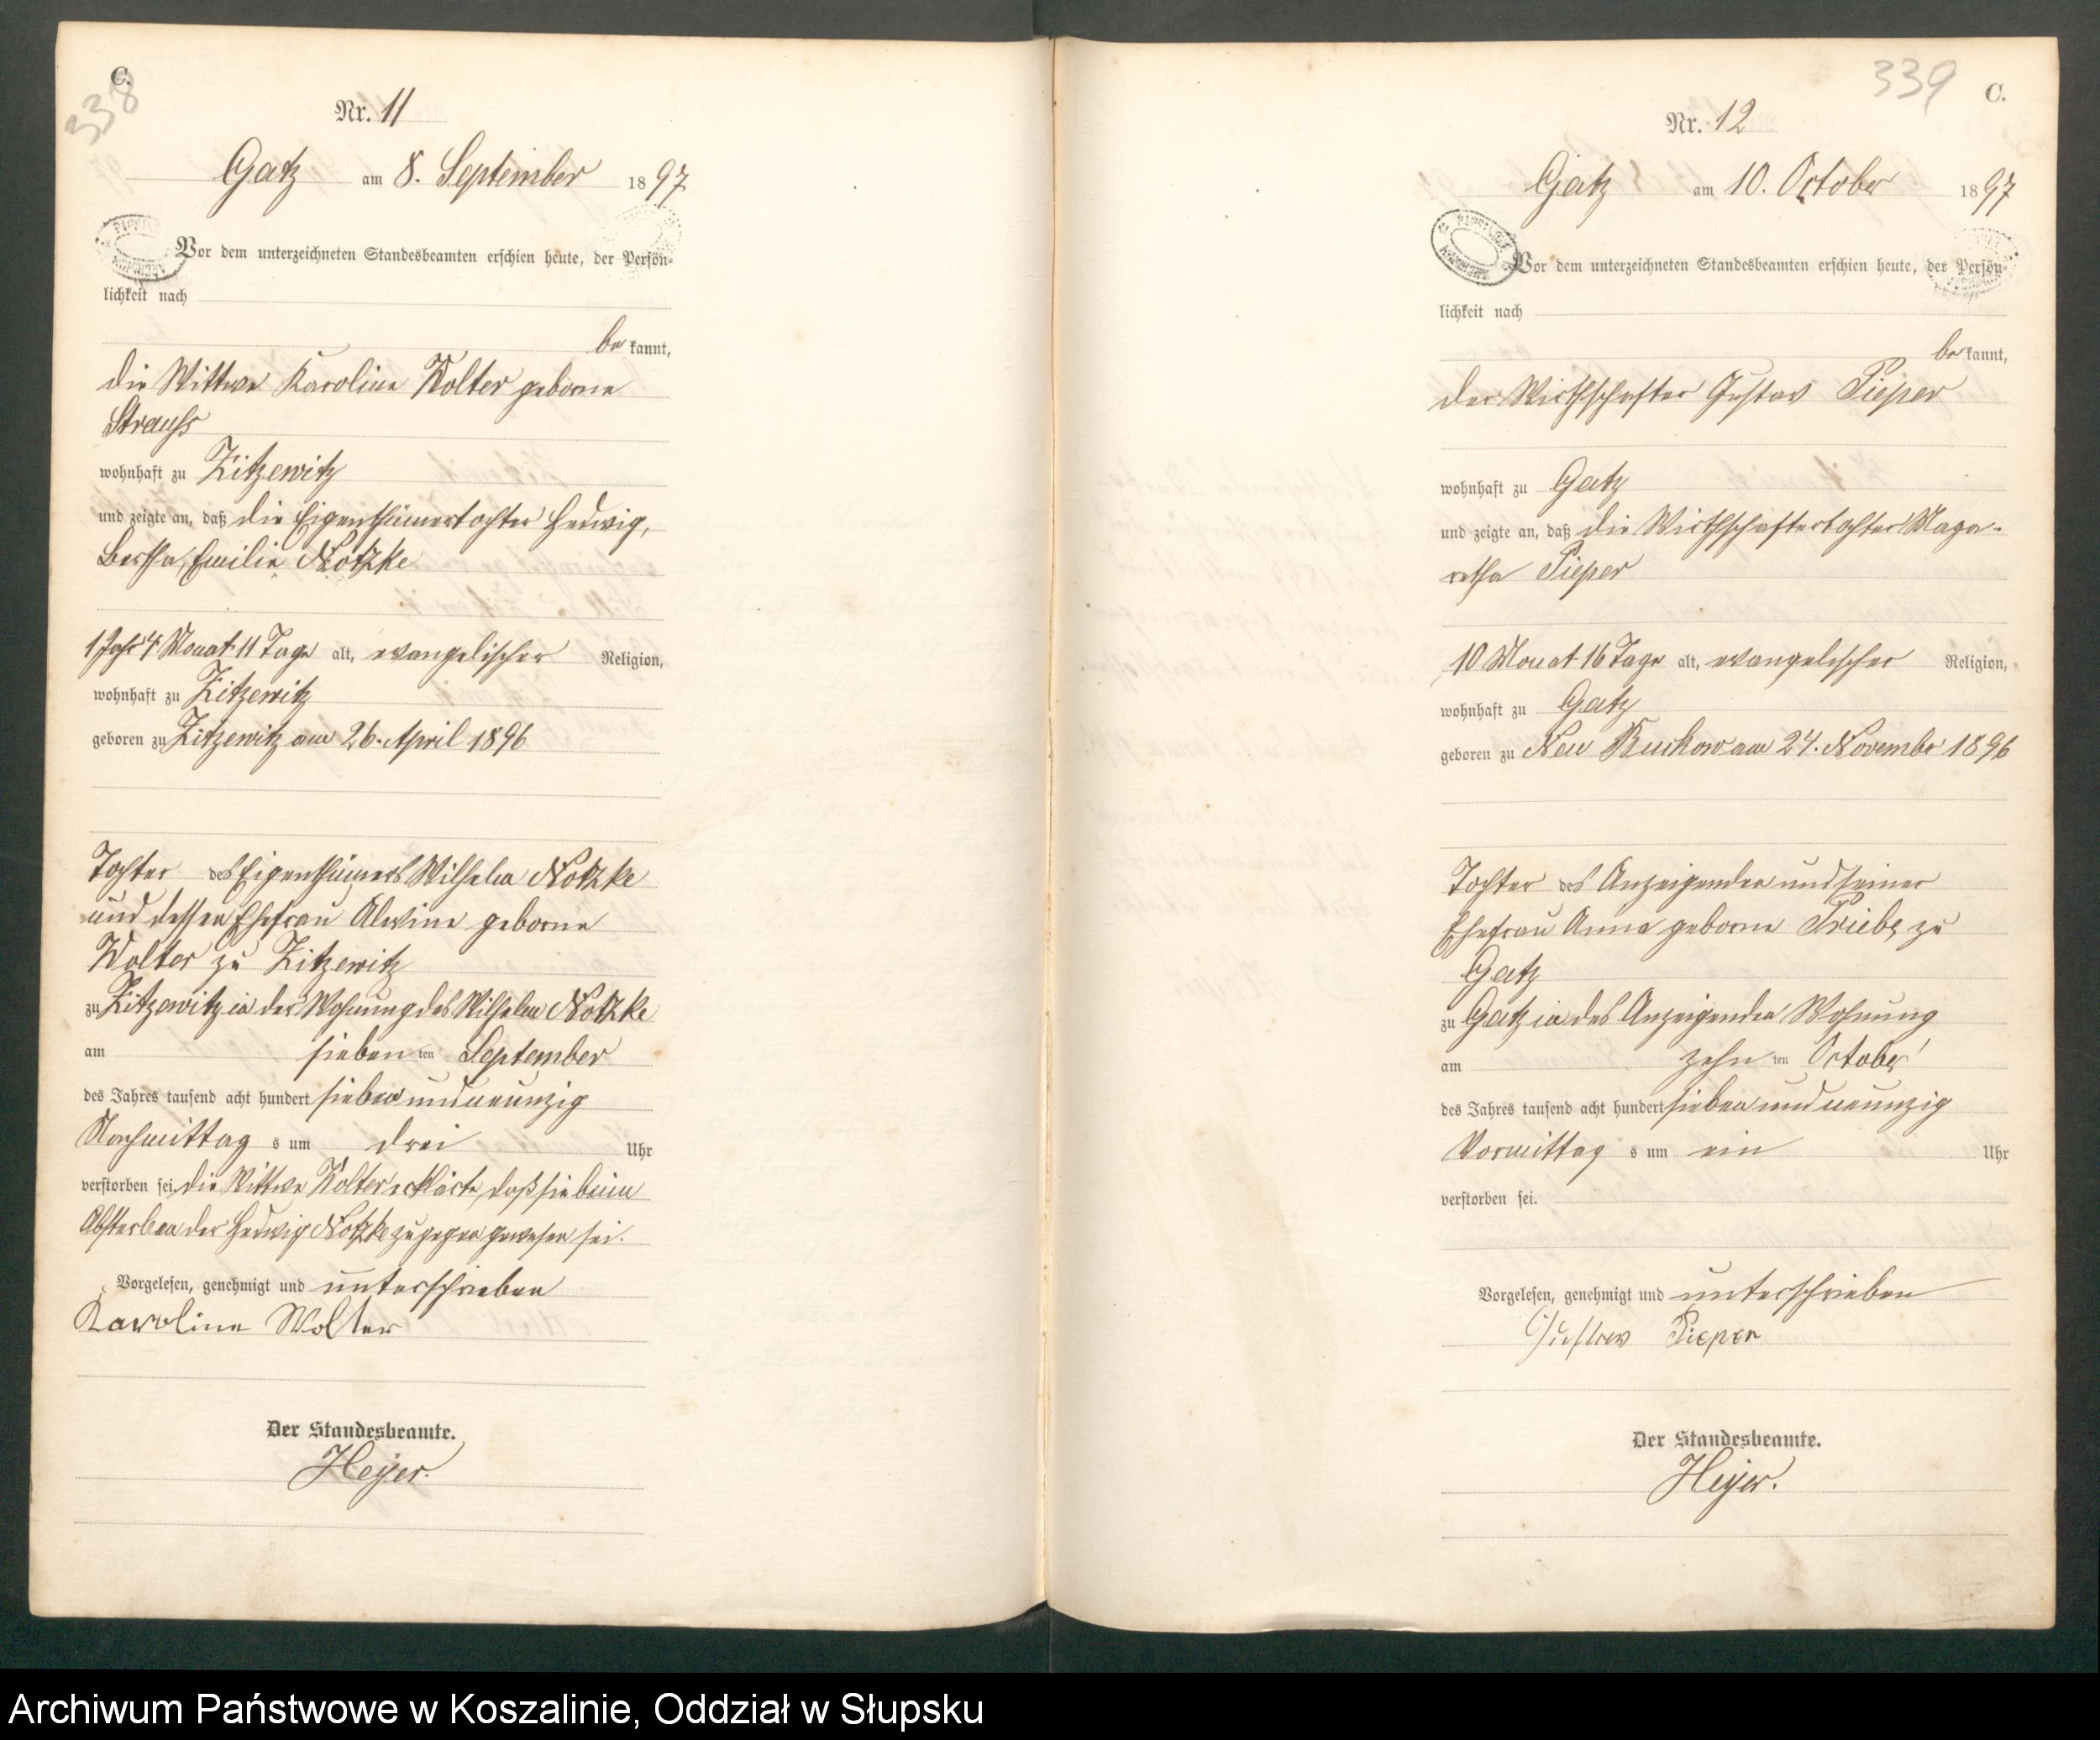 C.
338
Nr. 11
Gatz am 8. September 1897
Vor dem unterzeichneten Standesbeamten erschien heute, der Persön-
lichkeit nach
be kannt,
die Wittwe Karoline Wolter geborne
Strauss
wohnhaft zu Zitzewitz
und zeigte an, daß die Eigenthümertochter Hedwig,
Bertha, Emilie Notzke
1 Jahr 4 Monat 11 Tage alt, evangelischer Religion,
wohnhaft zu Zitzewitz
geboren zu Zitzewitz am 26. April 1896
Tochter des Eigenthümers Wilhelm Notzke
und dessen Ehefrau Alwine geborne
Wolter zu Zitzewitz
zu Zitzewitz in der Wohnung des Wilhelm Notzke
am sieben ten September
des Jahres tausend acht hundert sieben und neunzig
Nachmittag s um drei Uhr
verstorben sei, die Wittwe Wolter erklärte, daß sie beim
Absterben der Hedwig Notzke zugegen gewesen sei.
Vorgelesen, genehmigt und unterschrieben
Karoline Wolter
Der Standesbeamte.
Heyer.
339
C.
Nr. 12
Gatz am 10. October 1897
Vor dem unterzeichneten Standesbeamten erschien heute, der Persön-
lichkeit nach
be kannt,
der Wirthschafter Gustav Pieper
wohnhaft zu Gatz
und zeigte an, daß die Wirthschaftertochter Maga-
retha Pieper
10 Monat 16 Tage alt, evangelischer Religion,
wohnhaft zu Gatz
geboren zu Neu Kuckow am 24. November 1896
Tochter des Anzeigenden und seiner
Ehefrau Anna geborne Priebe zu
Gatz
zu Gatz in des Anzeigenden Wohnung
am zehn ten October
des Jahres tausend acht hundert sieben und neunzig
Vormittag s um ein Uhr
verstorben sei.
Vorgelesen, genehmigt und unterschrieben
Gustav Pieper
Der Standesbeamte.
Heyer.
Archiwum Państwowe w Koszalinie, Oddział w Słupsku